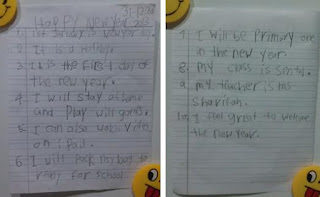 Happy New Year
1. 1st January is New year
2. It is a holiday
3. It is the first day of
the new year.
4. I will stay at home
and Play with
5. I can also watch Video
on iPad.
6. I will Pack my bag to
ready for school
7. I will be Primary one
in the new year.
8. my class is
9. my teacher is
10. I feel great to welcome
the new year.